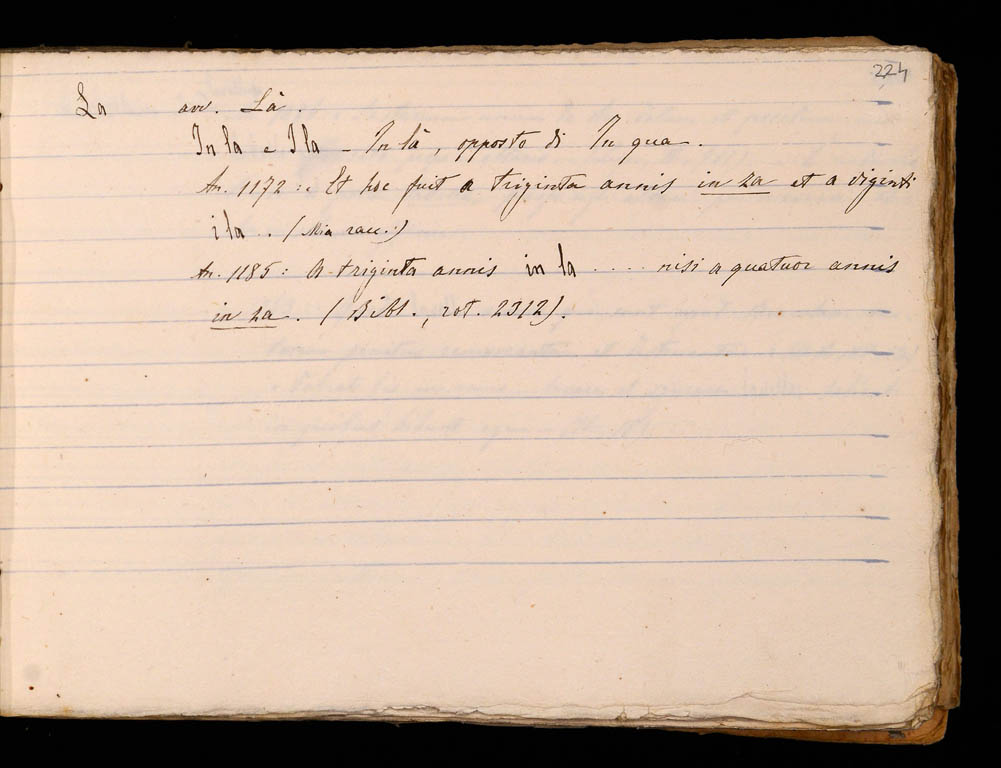 224
La avv. Là.
In la e I la - In là, opposto di In qua.
An. 1172: Et hoc fuit a triginta annis in za et a viginti
i la. (Mia racc.)
An. 1185: A triginta annis in la .... nisi a quatuor annis
in za. (Bibl., rot. 2312).